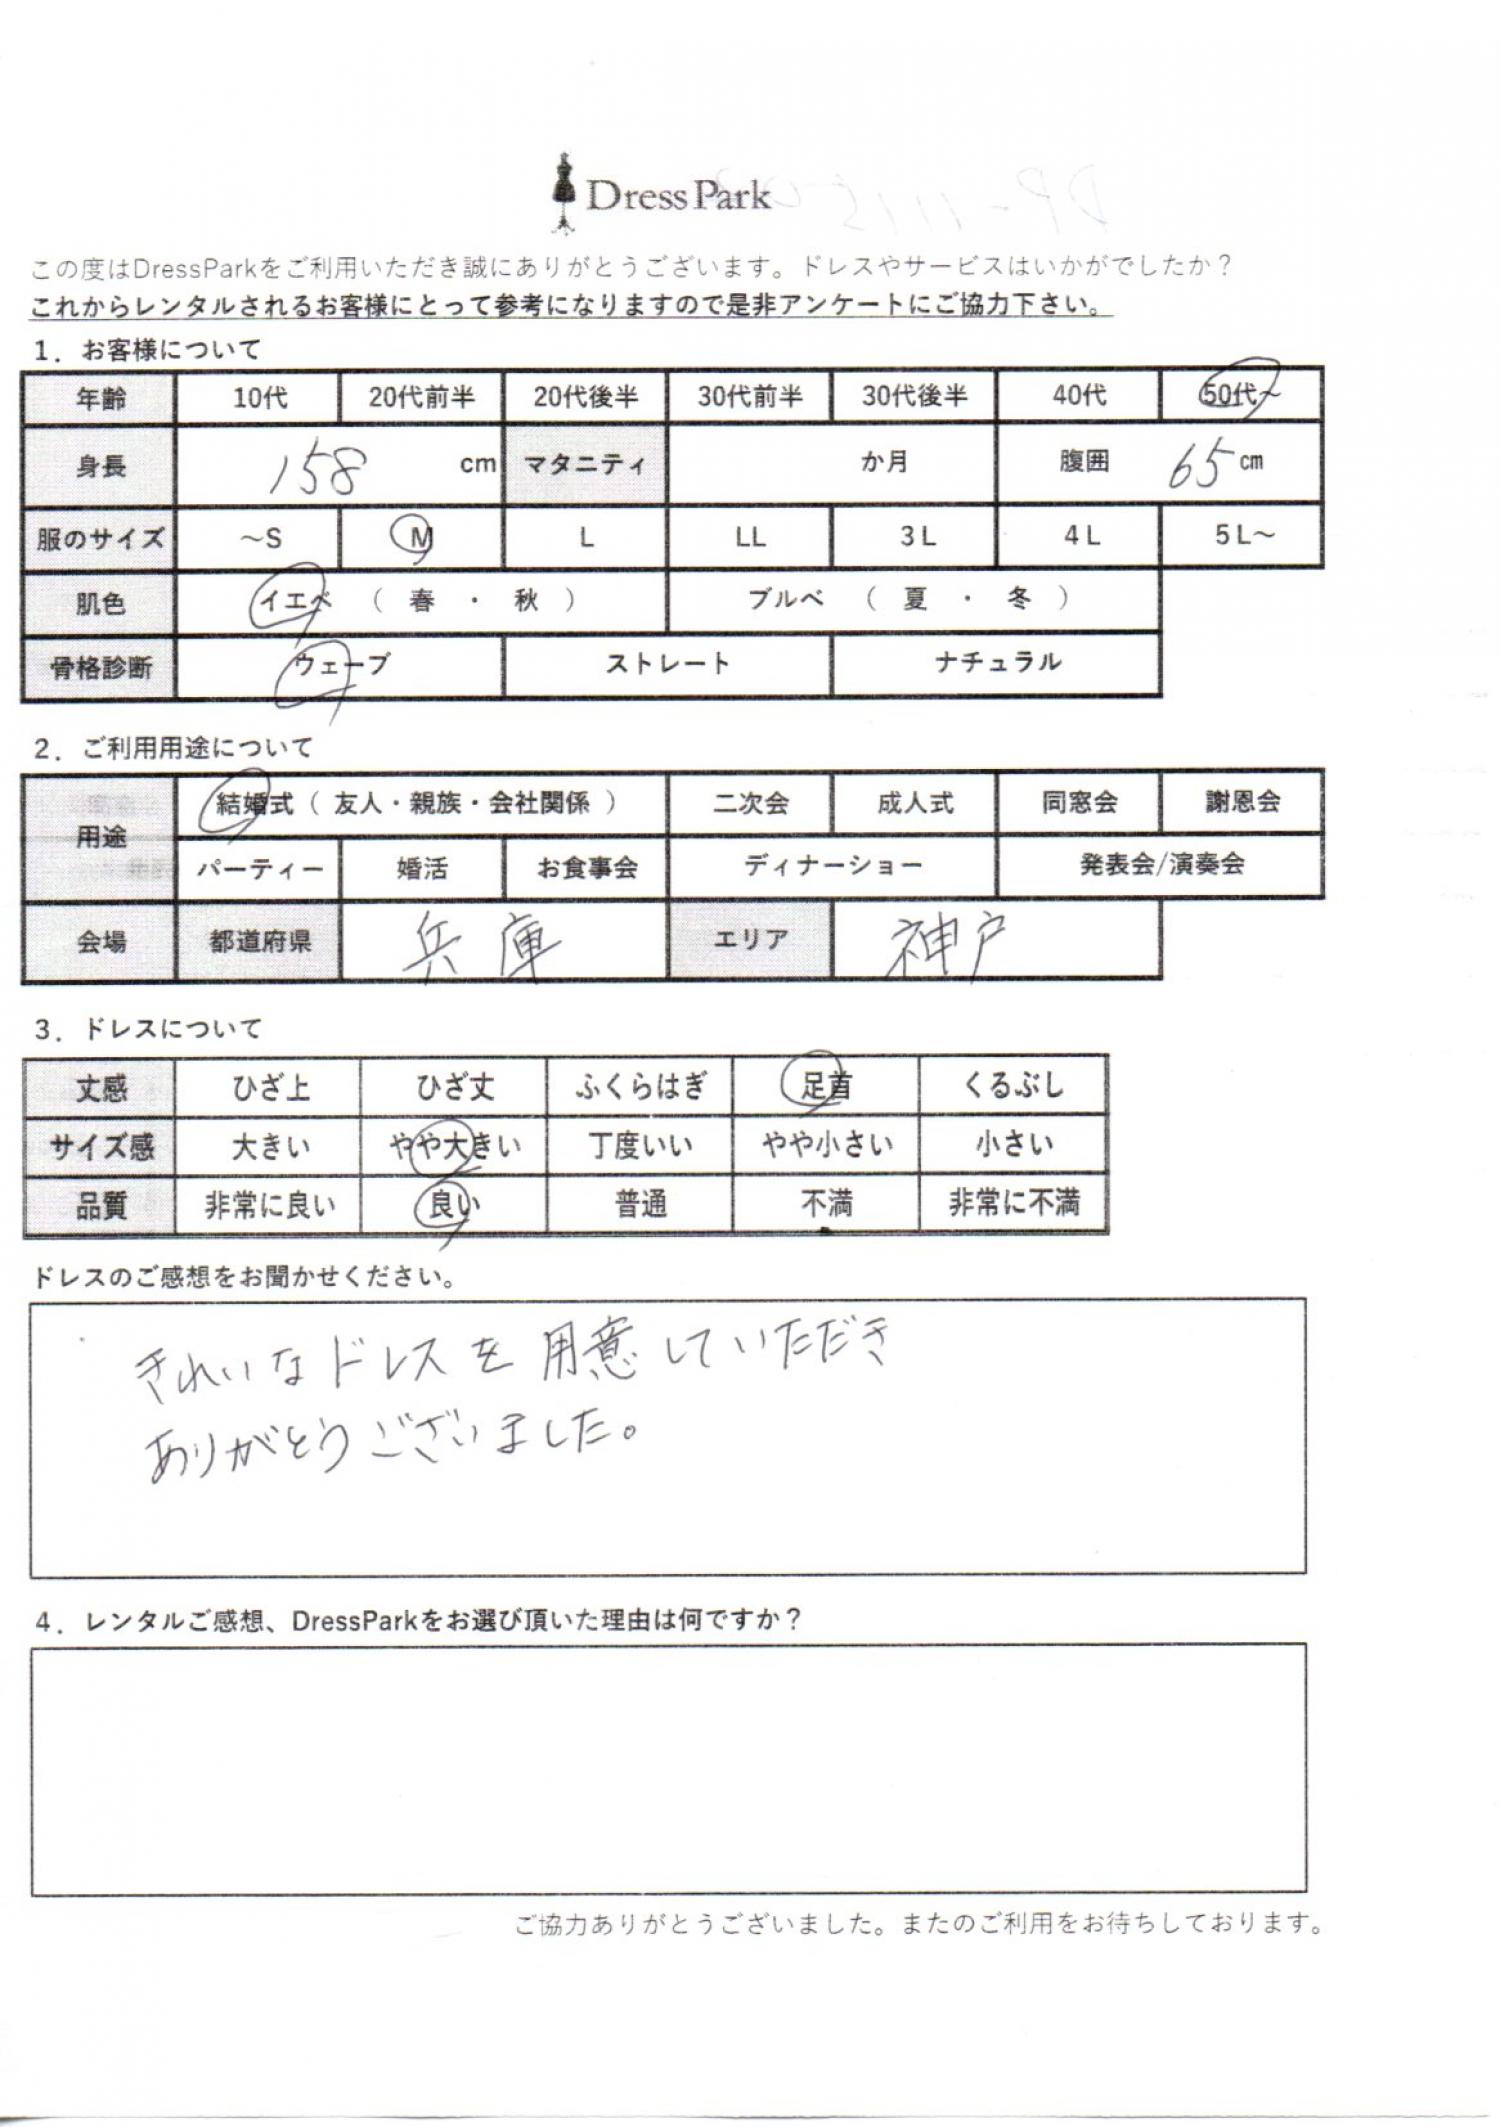 DressPark
この度はDressParkをご利用いただき誠にありがとうございます。ドレスやサービスはいかがでしたか？
これからレンタルされるお客様にとって参考になりますので是非アンケートにご協力下さい。
1．お客様について
年齢 10代 20代前半 20代後半 30代前半 30代後半 40代 50代～
身長 158 cm マタニティ か月 腹囲 65 cm
服のサイズ ～S M L LL 3L 4L 5L～
肌色 イエベ （ 春 ・ 秋 ） ブルベ （ 夏 ・ 冬 ）
骨格診断 ウェーブ ストレート ナチュラル
2．ご利用用途について
用途 結婚式（ 友人・親族・会社関係 ） 二次会 成人式 同窓会 謝恩会
パーティー 婚活 お食事会 ディナーショー 発表会/演奏会
会場 都道府県 兵庫 エリア 神戸
3．ドレスについて
丈感 ひざ上 ひざ丈 ふくらはぎ 足首 くるぶし
サイズ感 大きい やや大きい 丁度いい やや小さい 小さい
品質 非常に良い 良い 普通 不満 非常に不満
ドレスのご感想をお聞かせください。
きれいなドレスを用意していただき
ありがとうございました。
4．レンタルご感想、DressParkをお選び頂いた理由は何ですか？
ご協力ありがとうございました。またのご利用をお待ちしております。